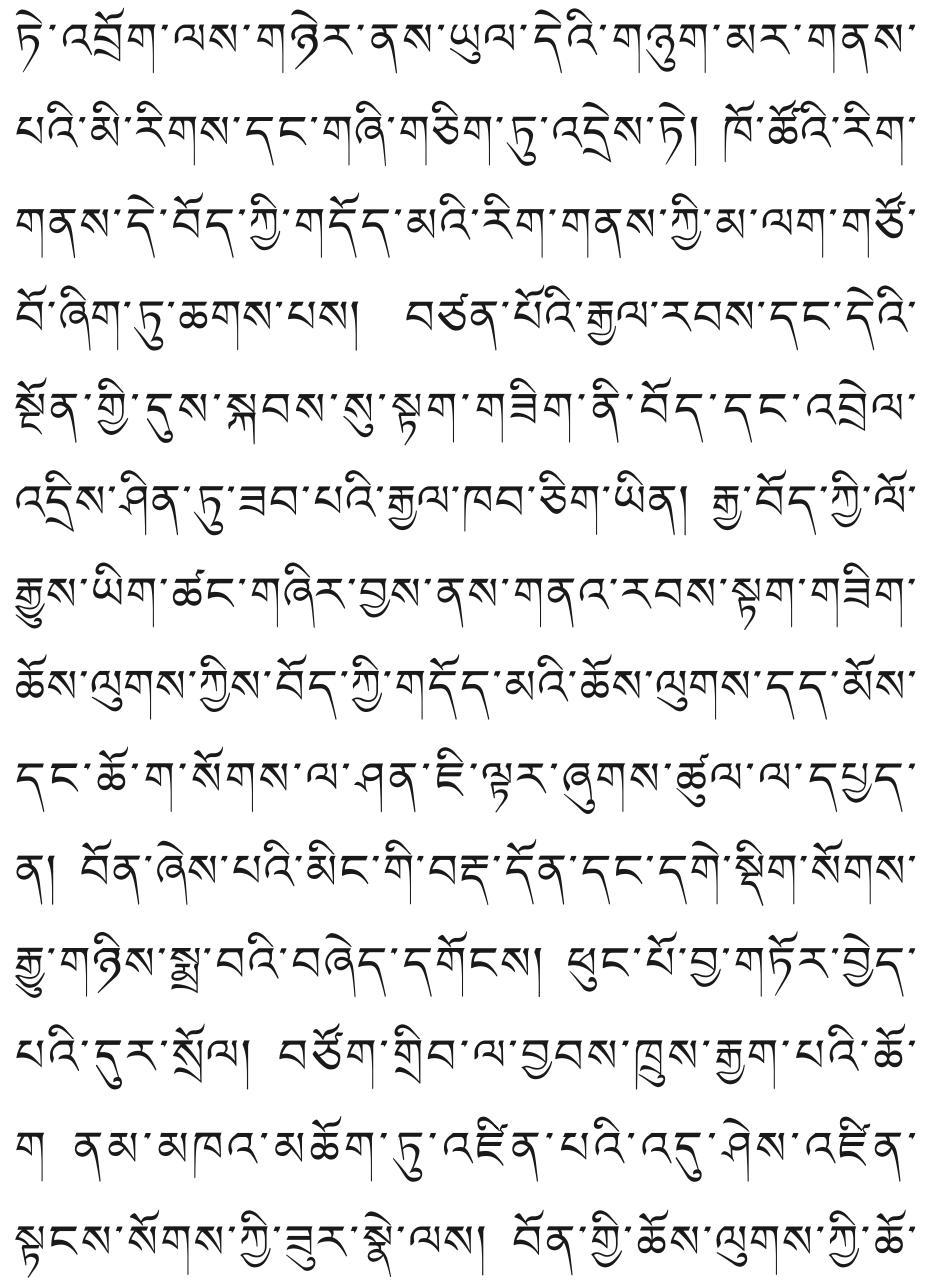 ཏེ་འབྲོག་ལས་གཉེར་ནས་ཡུལ་དེའི་གཉུག་མར་གནས་
པའི་མི་རིགས་དང་གཞི་གཅིག་ཏུ་འདྲེས་ཏེ། ཁོ་ཚོའི་རིག་
གནས་དེ་བོད་ཀྱི་གདོད་མའི་རིག་གནས་ཀྱི་མ་ལག་གཙོ་
བོ་ཞིག་ཏུ་ཆགས་པས། བཙན་པོའི་རྒྱལ་རབས་དང་དེའི་
སྔོན་གྱི་དུས་སྐབས་སུ་སྟག་གཟིག་ནི་བོད་དང་འབྲེལ་
འདྲིས་ཤིན་ཏུ་ཟབ་པའི་རྒྱལ་ཁབ་ཅིག་ཡིན། རྒྱ་བོད་ཀྱི་ལོ་
རྒྱུས་ཡིག་ཚང་གཞིར་བྱས་ནས་གནའ་རབས་སྟག་གཟིག་
ཆོས་ལུགས་ཀྱིས་བོད་ཀྱི་གདོད་མའི་ཆོས་ལུགས་དད་མོས་
དང་ཆོ་ག་སོགས་ལ་ཤན་ཇི་ལྟར་ཞུགས་ཚུལ་ལ་དཔྱད་
ན། བོན་ཞེས་པའི་མིང་གི་བརྡ་དོན་དང་དགེ་སྡིག་སོགས་
རྒྱུ་གཉིས་སྨྲ་བའི་བཞེད་དགོངས། ཕུང་པོ་བྱ་གཏོར་བྱེད་
པའི་དུར་སྲོལ། བཙོག་གྲིབ་ལ་བྱབས་ཁྲུས་རྒྱག་པའི་ཆོ་
ག ནམ་མཁའ་མཆོག་ཏུ་འཛིན་པའི་འདུ་ཤེས་འཛིན་
སྟངས་སོགས་ཀྱི་ཟུར་སྣེ་ལས། བོན་གྱི་ཆོས་ལུགས་ཀྱི་ཆོ་